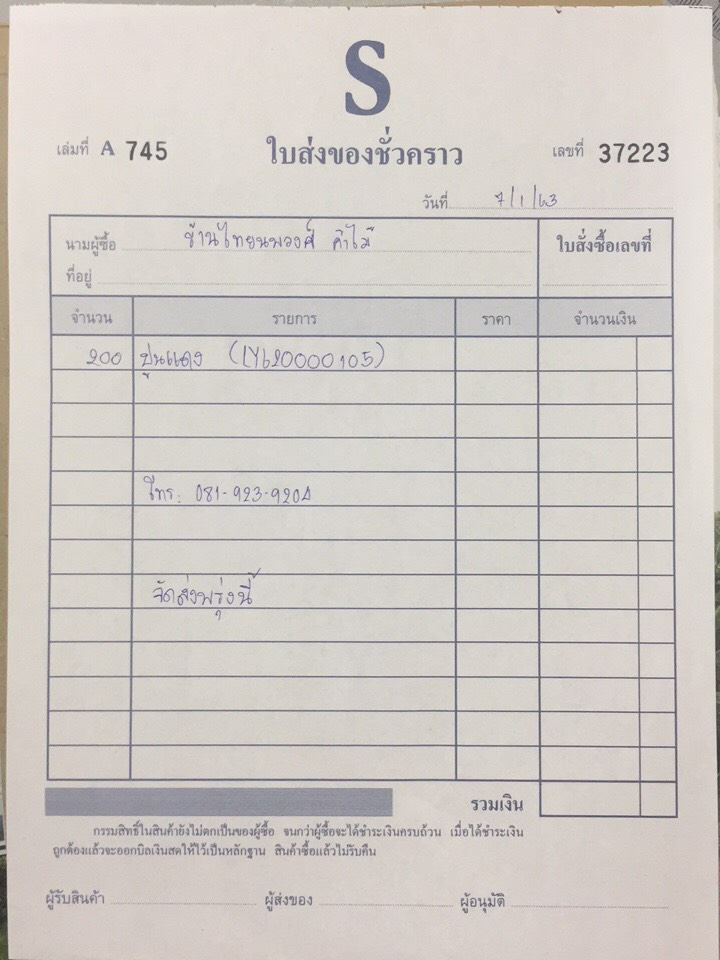 S
เล่มที่ A 745
ใบส่งของชั่วคราว
เลขที่ 37223
วันที่ 7/1/63
นามผู้ซื้อ ร้านไทยนพวงศ์ ค้าไม้
ใบสั่งซื้อเลขที่
ที่อยู่
จำนวน รายการ ราคา จำนวนเงิน
200 ปูนแดง (LY620000105)
โทร: 081-923-9204
จัดส่งพรุ่งนี้
รวมเงิน
กรรมสิทธิ์ในสินค้ายังไม่ตกเป็นของผู้ซื้อ จนกว่าผู้ซื้อจะได้ชำระเงินครบถ้วน เมื่อได้ชำระเงิน
ถูกต้องแล้วจะออกบิลเงินสดให้ไว้เป็นหลักฐาน สินค้าซื้อแล้วไม่รับคืน
ผู้รับสินค้า ผู้ส่งของ ผู้อนุมัติ